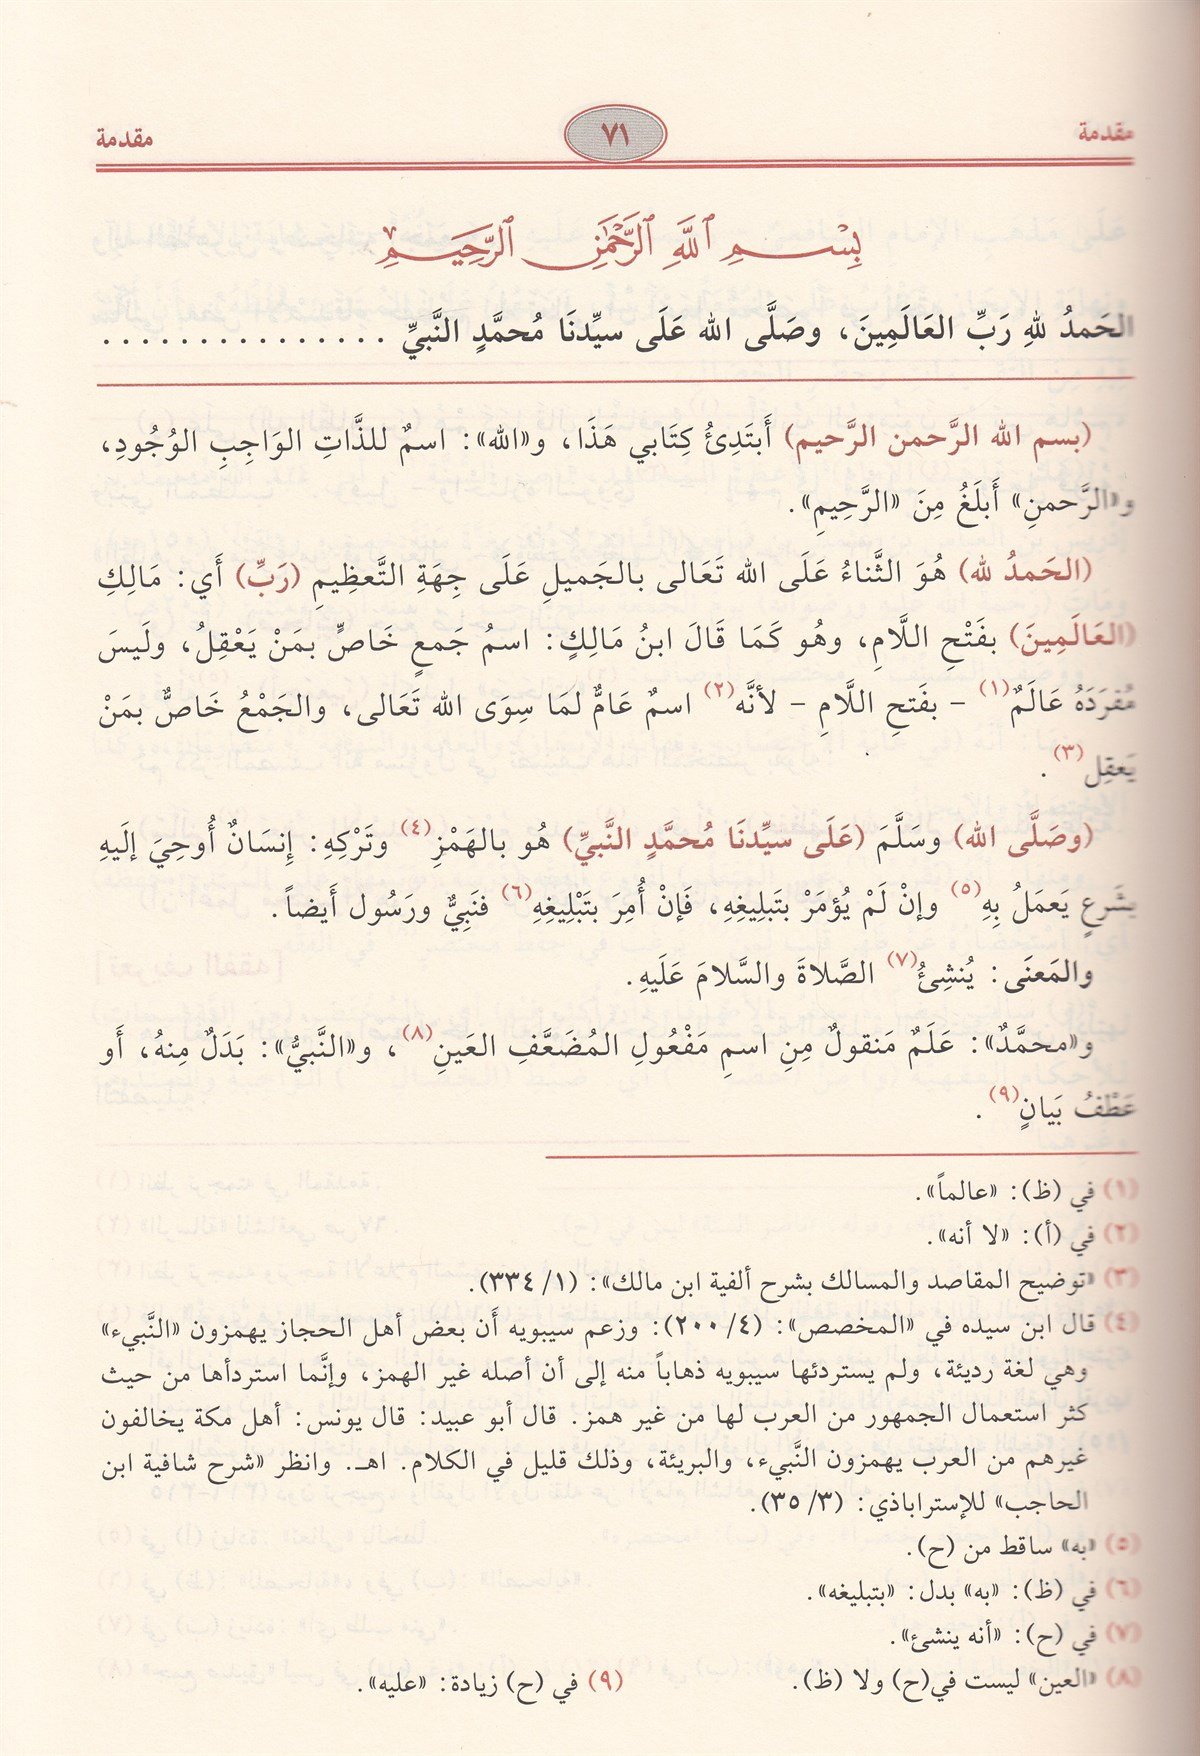 مقدمة ٧١ مقدمة
بِسْمِ ٱللَّهِ ٱلرَّحْمَٰنِ ٱلرَّحِيمِ
الحَمدُ للهِ رَبِّ العَالَمِينَ، وصَلَّى الله عَلَى سيِّدنَا مُحمَّدٍ النَّبيِّ . . . . . . . . . . . . . . .
(بسم الله الرَّحمن الرَّحيم) أَبتَدِئُ كِتَابي هَذَا، و«الله»: اسمٌ للذَّاتِ الوَاجِبِ الوُجُودِ،
و«الرَّحمنِ» أَبلَغُ مِنَ «الرَّحِيمِ».
(الحَمدُ لله) هُوَ الثَّناءُ عَلَى الله تَعَالى بالجَميلِ عَلَى جِهَةِ التَّعظِيمِ (رَبِّ) أَي: مَالِكِ
(العَالَمِينَ) بفَتْحِ اللَّامِ، وهُو كَمَا قَالَ ابنُ مَالِكٍ: اسمُ جَمعٍ خَاصٍّ بمَنْ يَعْقِلُ، ولَيسَ
مُفرَدَهُ عَالَمٌ(١) - بفَتحِ اللَّامِ - لأنَّه(٢) اسمٌ عَامٌّ لمَا سِوَى الله تَعَالى، والجَمْعُ خَاصٌّ بمَنْ
يَعقِل(٣).
(وصَلَّى الله) وسَلَّمَ (عَلَى سيِّدنَا مُحمَّدٍ النَّبيِّ) هُو بالهَمْزِ(٤) وتَرْكِهِ: إِنسَانٌ أُوحِيَ إلَيهِ
بشَرعٍ يَعمَلُ بِهِ(٥) وإنْ لَمْ يُؤمَرْ بتَبلِيغِهِ، فَإنْ أُمِرَ بتَبْلِيغِهِ(٦) فنَبِيٌّ ورَسُول أَيضاً.
والمَعنَى: يُنشِئُ(٧) الصَّلاةَ والسَّلامَ عَلَيهِ.
و«محمَّدٌ»: عَلَمٌ مَنقولٌ مِنِ اسمِ مَفْعُولِ المُضَعَّفِ العَينِ(٨)، و«النَّبيُّ»: بَدَلٌ مِنهُ، أَو
عَطْفُ بَيانٍ(٩).
(١) في (ظ): «عالماً».
(٢) في (أ): «لا أنه».
(٣) «توضيح المقاصد والمسالك بشرح ألفية ابن مالك»: (١/ ٣٣٤).
(٤) قال ابن سيده في «المخصص»: (٤/ ٢٠٠): وزعم سيبويه أَن بعض أهل الحجاز يهمزون «النَّبيء»
وهي لغة رديئة، ولم يستردئها سيبويه ذهاباً منه إلى أن أصله غير الهمز، وإنَّما استردأها من حيث
كثر استعمال الجمهور من العرب لها من غير همز. قال أبو عبيد: قال يونس: أهل مكة يخالفون
غيرهم من العرب يهمزون النَّبيء، والبريئة، وذلك قليل في الكلام. اهـ. وانظر «شرح شافية ابن
الحاجب» للإستراباذي: (٣/ ٣٥).
(٥) «به» ساقط من (ح).
(٦) في (ظ): «به» بدل: «بتبليغه».
(٧) في (ح): «أنه ينشئ».
(٨) «العين» ليست في(ح) ولا (ظ). (٩) في (ح) زيادة: «عليه».